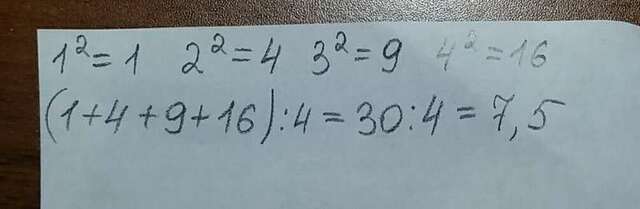 1²=1 2²=4 3²=9 4²=16
(1+4+9+16):4=30:4=7,5